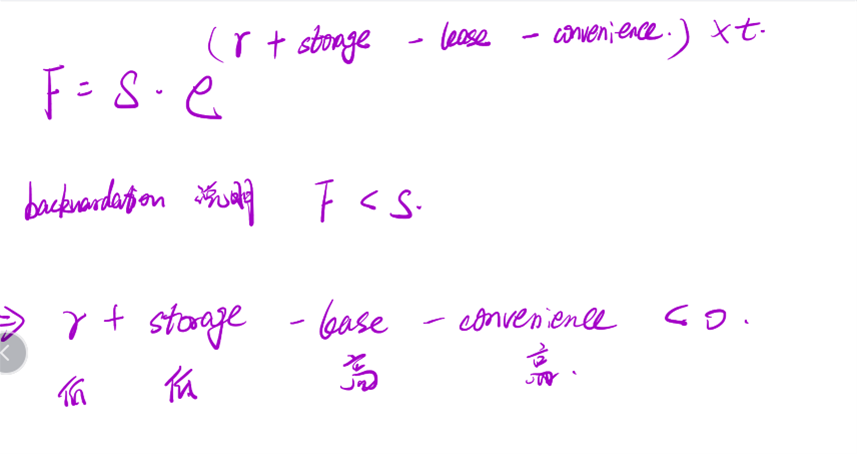 (r + storage - lease - convenience.) × t.
F = S · e
backwardation 说明 F < S.
⇒ r + storage - lease - convenience < 0.
低 低 高 高.